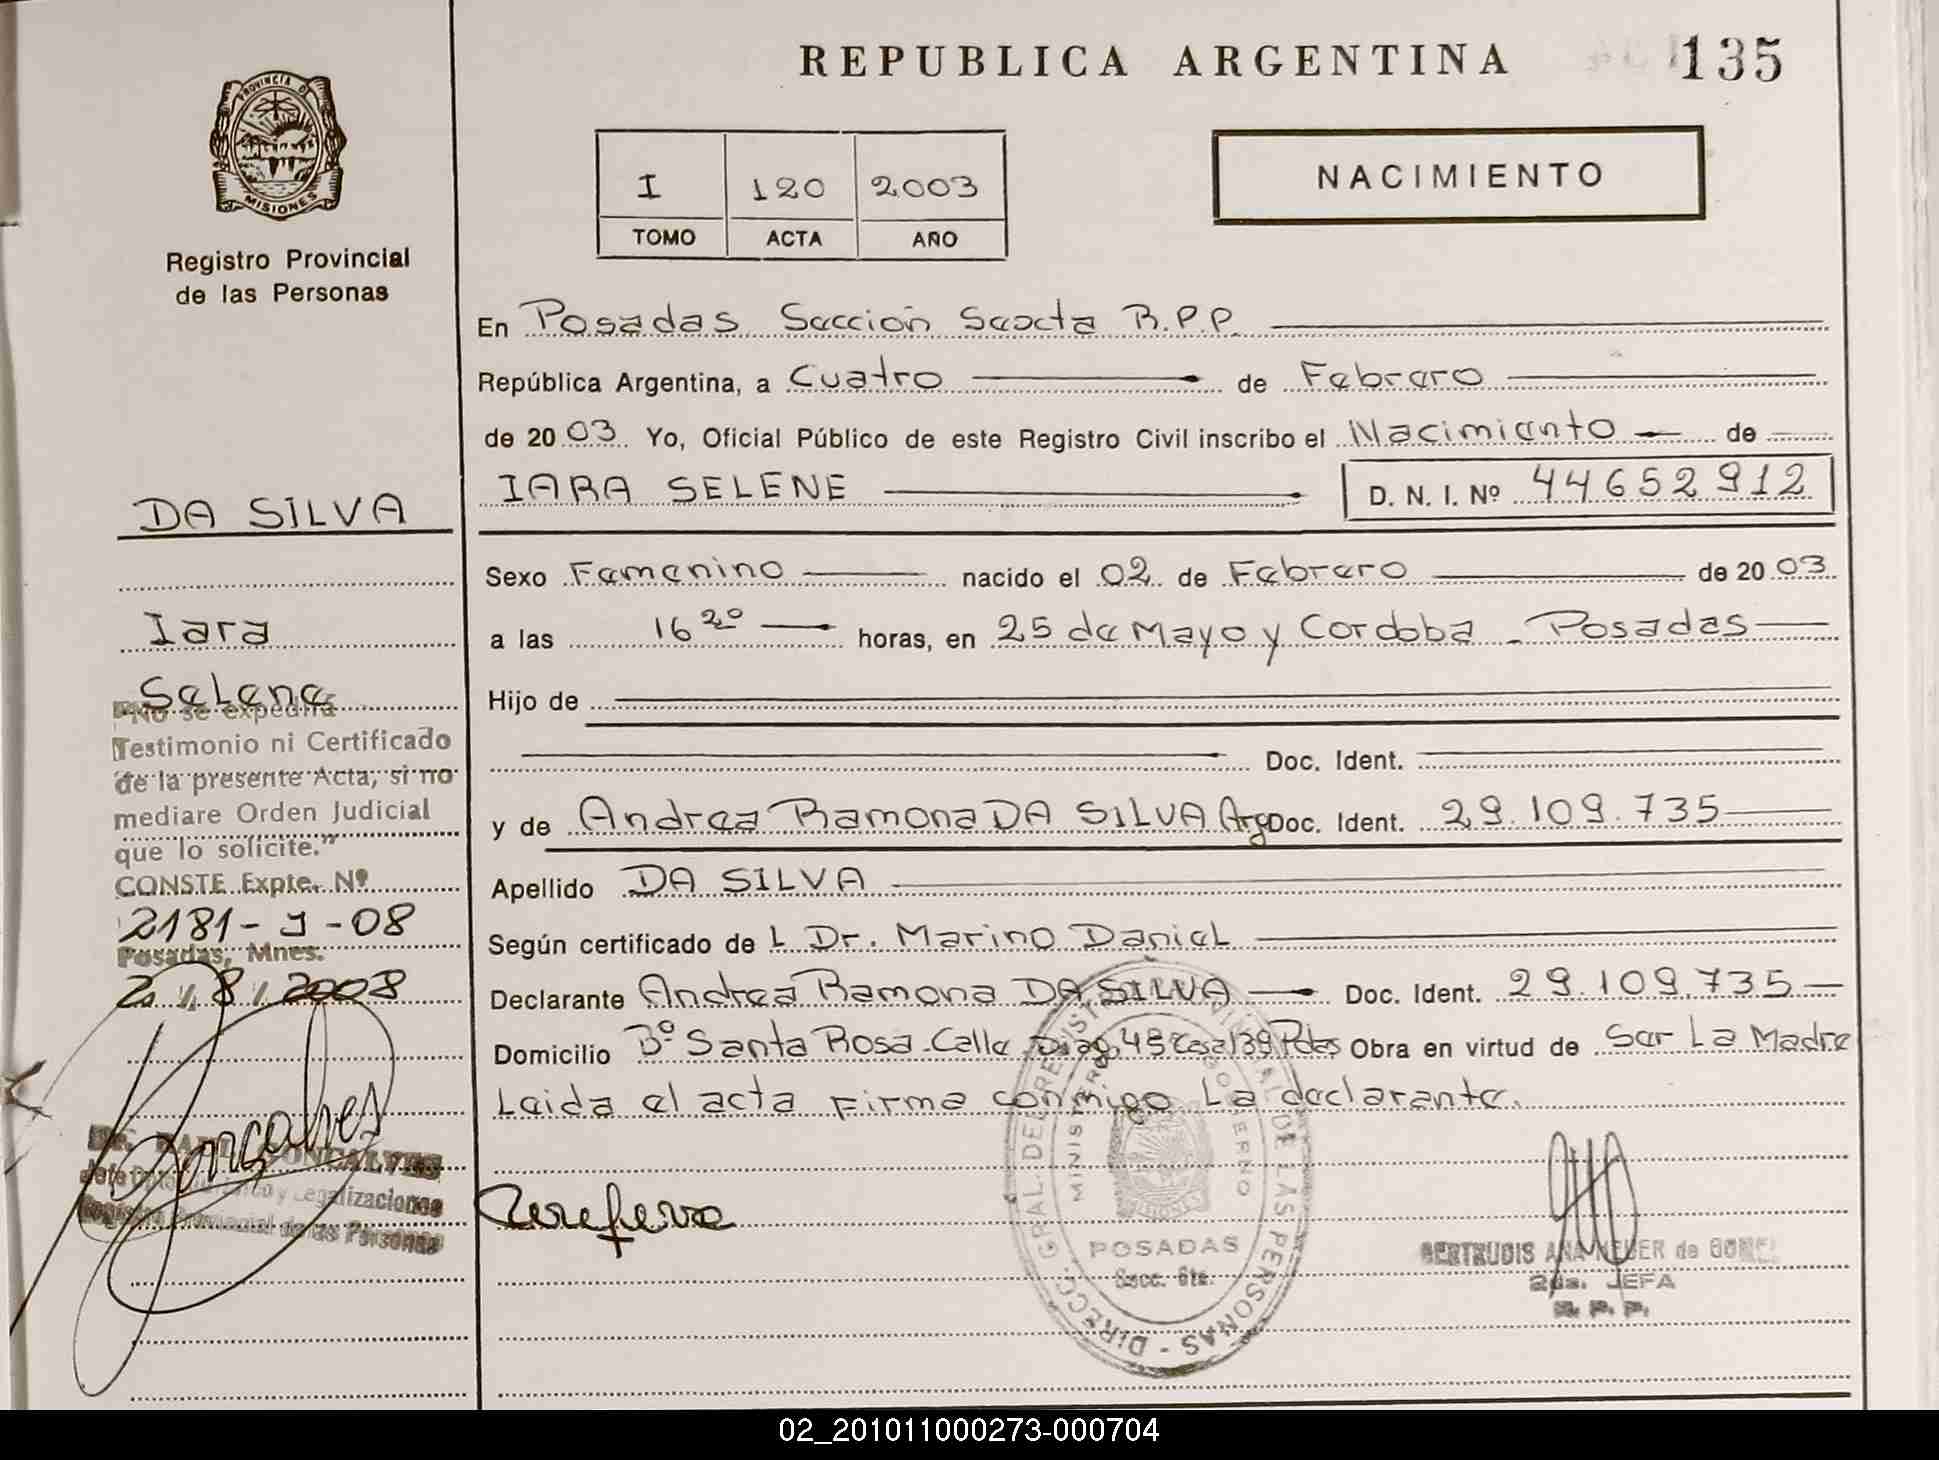 REPUBLICA ARGENTINA
135
PROVINCIA D
MISIONES
Registro Provincial
de las Personas
I 120 2003
TOMO ACTA AÑO
NACIMIENTO
En Posadas Sección Sexta R.P.P.
República Argentina, a Cuatro de Febrero
de 2003 Yo, Oficial Público de este Registro Civil inscribo el Nacimiento de
IARA SELENE D. N. I. Nº 44652912
DA SILVA
Sexo Femenino nacido el 02 de Febrero de 2003
Iara
a las 16 20 horas, en 25 de Mayo y Cordoba - Posadas
Selene
Hijo de
"No se expedirá
Testimonio ni Certificado
de la presente Acta, si no
mediare Orden Judicial
que lo solicite."
CONSTE Expte. Nº
2181-J-08
Posadas, Mnes.
2. / 8 / 2008
Doc. Ident.
y de Andrea Ramona DA SILVA Arg Doc. Ident. 29.109.735
Apellido DA SILVA
Según certificado de L Dr. Marino Daniel
Declarante Andrea Ramona DA SILVA Doc. Ident. 29.109.735
Domicilio Bº Santa Rosa - Calle Diag. 48 Casa 139 Pdas Obra en virtud de Ser La Madre
Leida el acta Firma conmigo La declarante.
GONCALVES
Jefe Dpto. Jurídico y Legalizaciones
Registro Provincial de las Personas
DIRECC. GRAL. DEL REGISTRO PROVINCIAL DE LAS PERSONAS
MINISTERIO GOBIERNO
MISIONES
POSADAS
Secc. 6ta.
GERTRUDIS ANA de
2da. JEFA
R. P. P.
02_201011000273-000704